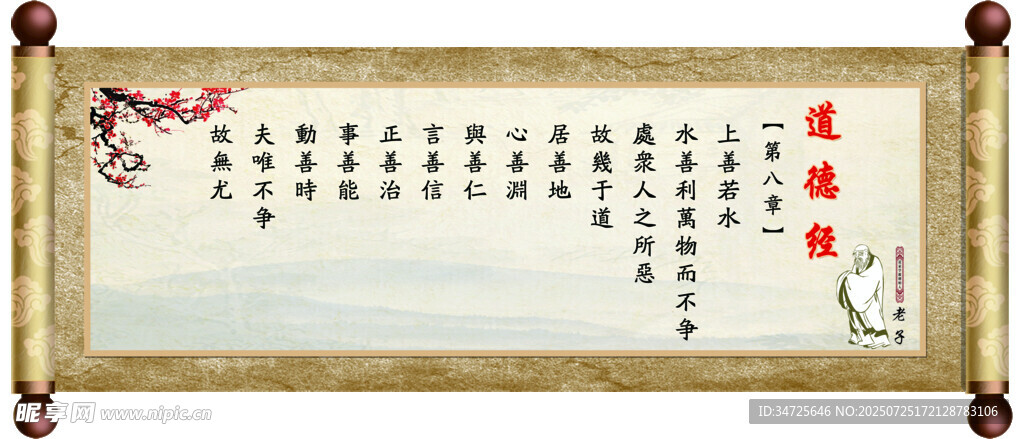 道德经
【第八章】
上善若水
水善利萬物而不争
處衆人之所惡
故幾于道
居善地
心善淵
與善仁
言善信
正善治
事善能
動善時
夫唯不争
故無尤
老子
昵享网 www.nipic.cn
ID:34725646 NO:20250725172128783106